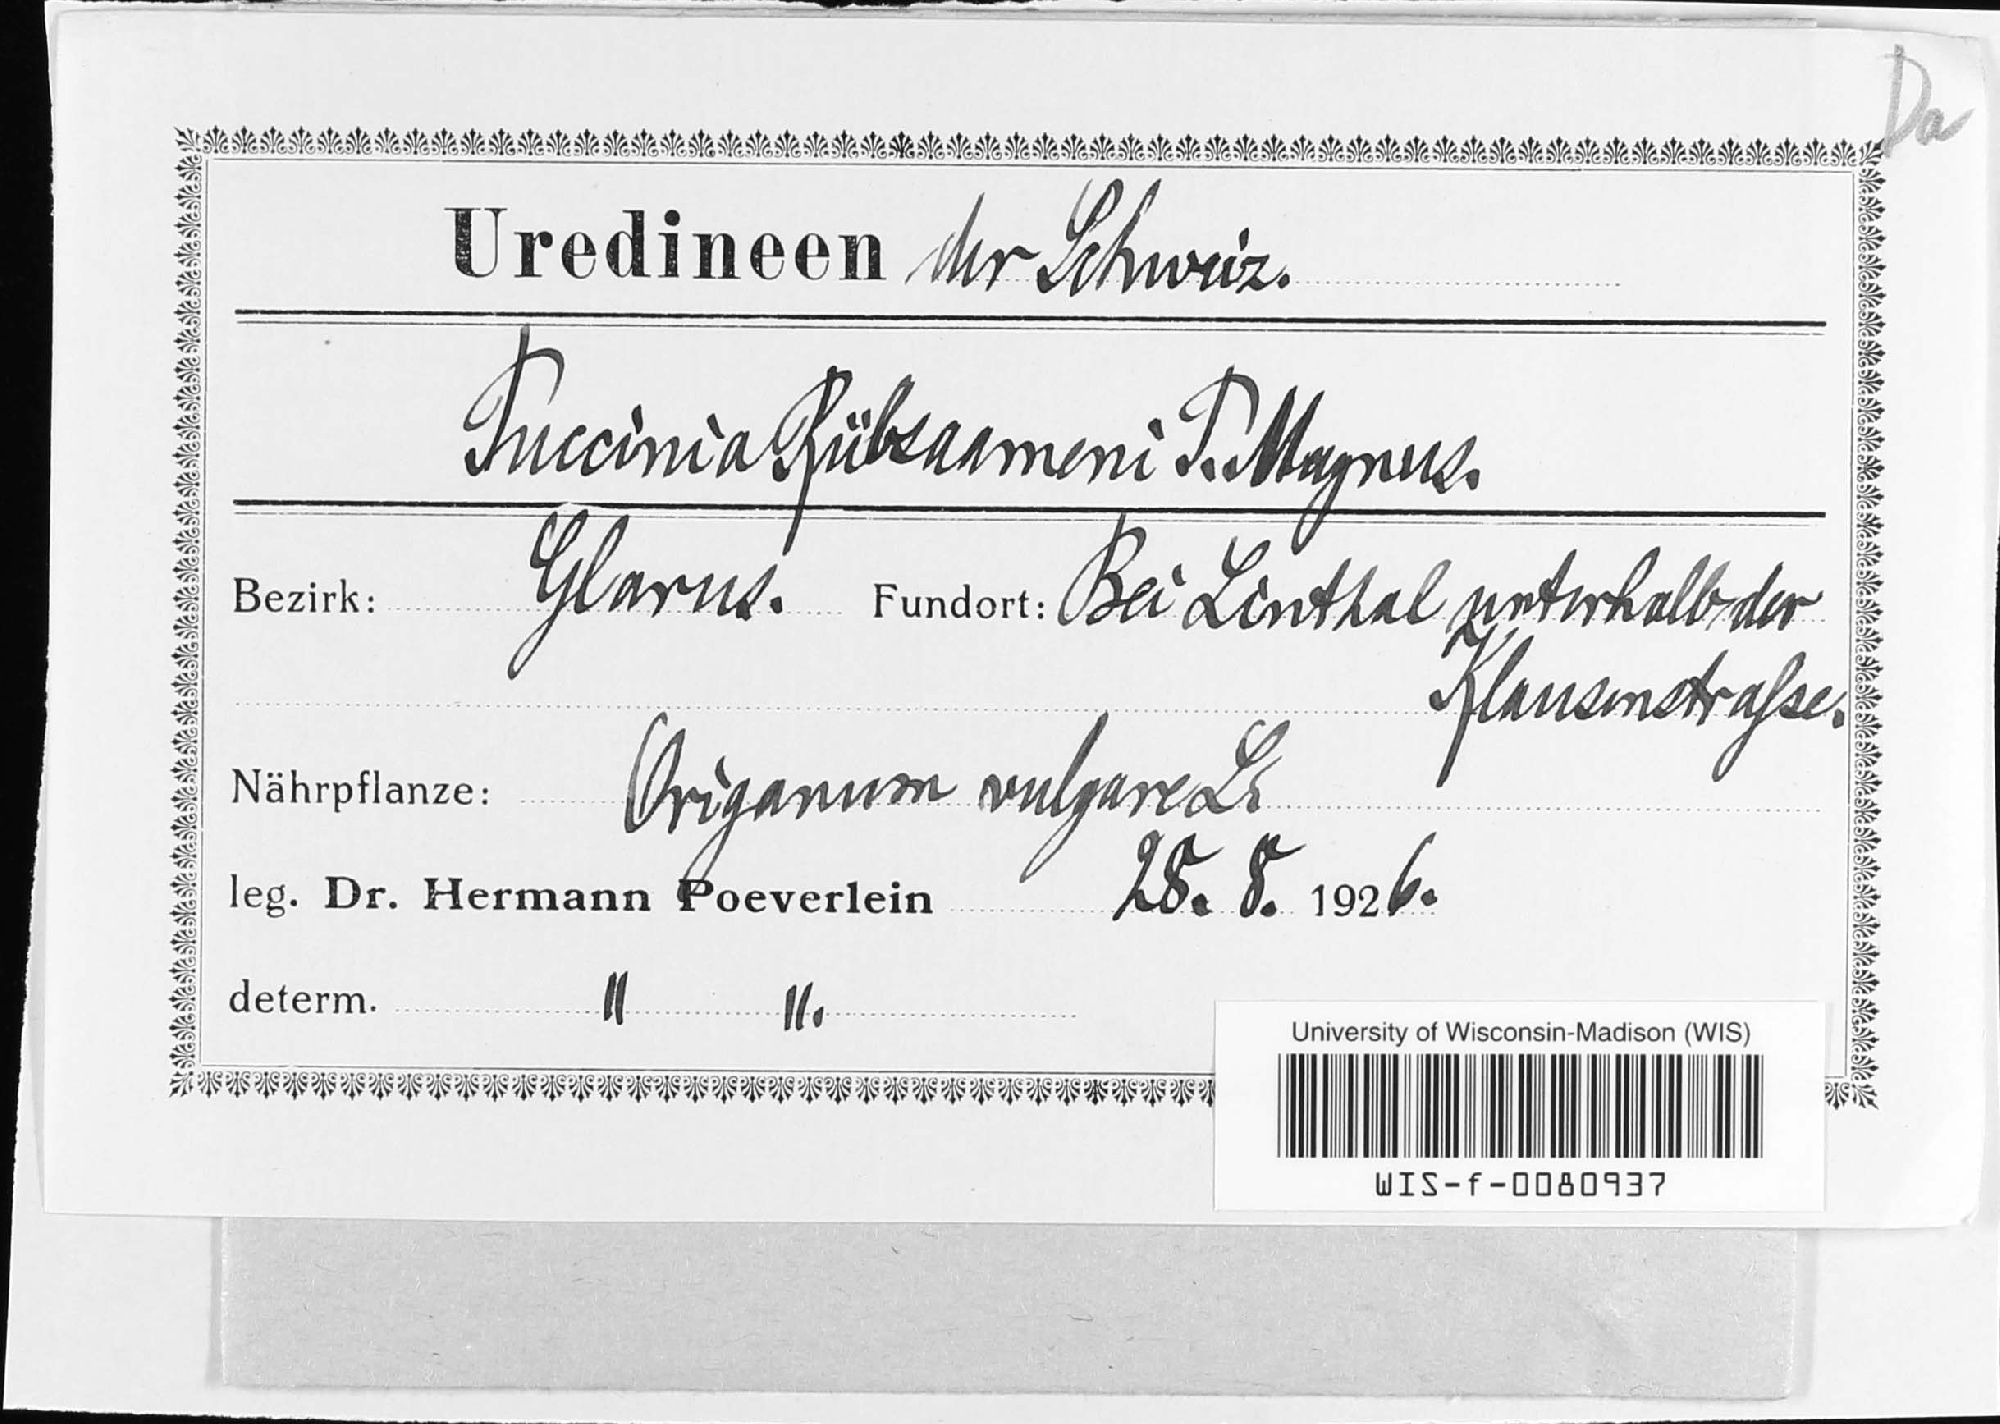 Da
Uredineen der Schweiz.
Puccinia Rübsaameni P. Magnus.
Bezirk: Glarus. Fundort: Bei Linthal unterhalb der
Klausenstrasse.
Nährpflanze: Origanum vulgare L.
leg. Dr. Hermann Poeverlein 28. 8. 1926.
determ. " ".
University of Wisconsin-Madison (WIS)
WIS-f-0080937